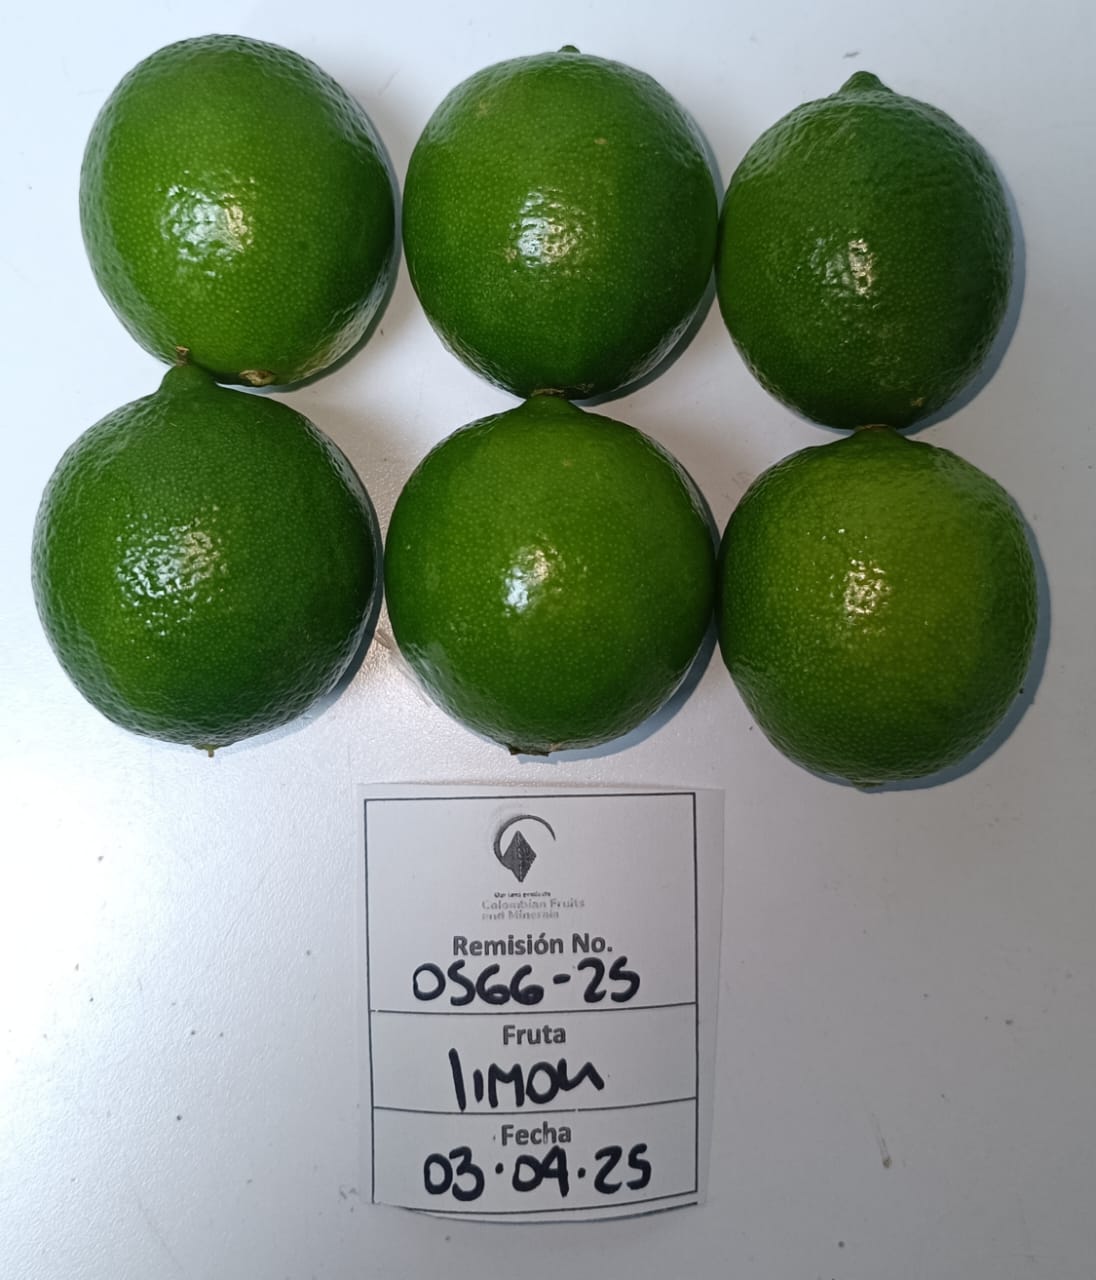 Our land products
Colombian Fruits
and Minerals
Remisión No.
0566-25
Fruta
limon
Fecha
03.04.25